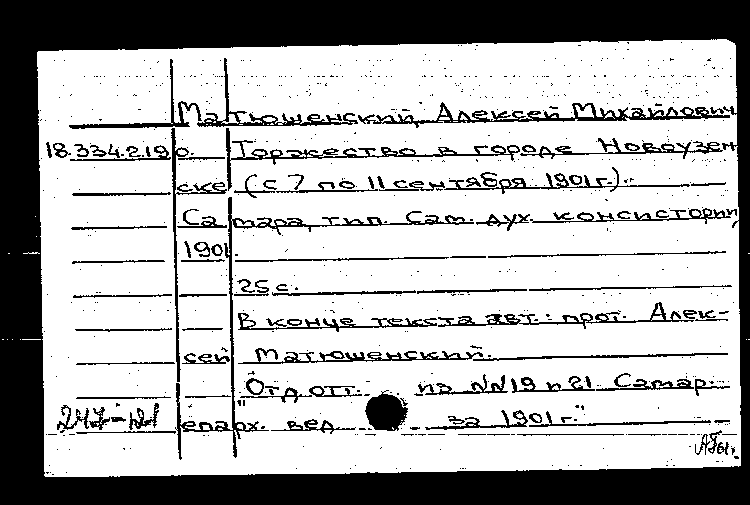 Матюшенский, Алексей Михайлович
18.334.2.19 о. Торжество в городе Новоузен
ске (с 7 по 11 сентября 1901 г.).
Самара, тип. Сам. дух. консистории,
1901.
25 с.
В конце текста авт.: прот. Алек-
сей Матюшенский.
"Отд. отт. из №№19 и 21 Самар.
247-21 епарх. вед. за 1901 г."